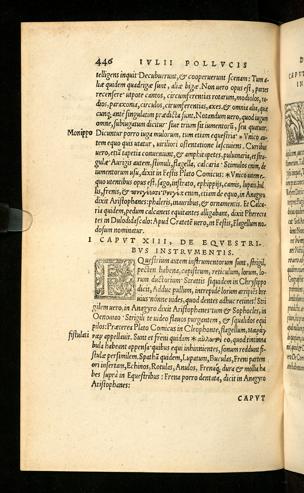 446 IVLII POLLVCIS
telligens inquit Decuburrunt, & cooperuerunt scenam: Tum a-
liæ quidem quadrigæ sunt, aliæ bigæ. Non uero opus est, partes
recensere utpote cantos, circumferentias rotarum, modiolos, ra-
dios, paraxonia, circulos, circumferentias, axes, & omnia alia, quæ
cunq; ante singulatim prædicta sunt. Notandum uero, quod iugum
omne, subiugatum dicitur siue trium sit iumentorū, seu quatuor.
Monippo Dicuntur porro iuga mulorum, tum etiam equestria Vnico au-
tem equo quis utatur, uiriliori ostentatione lasciuens. Curribus
uero, etiā tapetia conueniunt, & amphitapetes, puluinaria, epistyl-
gulæ Aurigis autem stimuli, flagella, calcaria: Stimulos enim, de
iumentorum usu, dixit in Festis Plato Comicus: Vnico autem e-
quo utentibus opus est, sago, infrato, ephippijs, camis, lupis, ha-
lis, frenis, enim, etiam de equo, in Anagyro
dixit Aristophanes: phaleris, mauribus, & ornamentis. Et Calca-
ria quidem, pedum calcanei equitantes alligabant, dixit Pherecra
tes in Dulodidascalo: Apud Cratetē uero, in Festis, Flagellum no-
dosum nominatur.
I CAPVT XIII, DE EQVESTRI-
BVS INSTRVMENTIS.
EQuestrium autem instrumentorum sunt, strigil,
pecten, habena, capistrum, reticulum, lorum, lo-
rum ductorium: Strattis siquidem in Chrysippo
dicit, Adduc autem, intrepide lorum arripiens bre
uius nonne uides, quod dentes adhuc retinet? Stri
gilem uero, in Anagyro dixit Aristophanes: tum & Sophocles in
Oenomao: Strigili te uideo flauos purgantem, & squalidæ equi
pilos: Præterea Plato Comicus in Cleophonte, flagellum,
appellauit. Sunt et freni quidam eo, quod tintinna
fistulati bula habeant appensa: quibus equi inhinnientes, sonum reddunt fi-
stulæ persimilem. Spathā quidem, Lupatum, Bucidas, Freni partem
ori insertam, Echinos, Rotulas, Anulos, Frenaq; dura & mollia ha
bes supra in Equestribus: Frena porro dentata, dicit in Anagyro
Aristophanes:
CAPVT